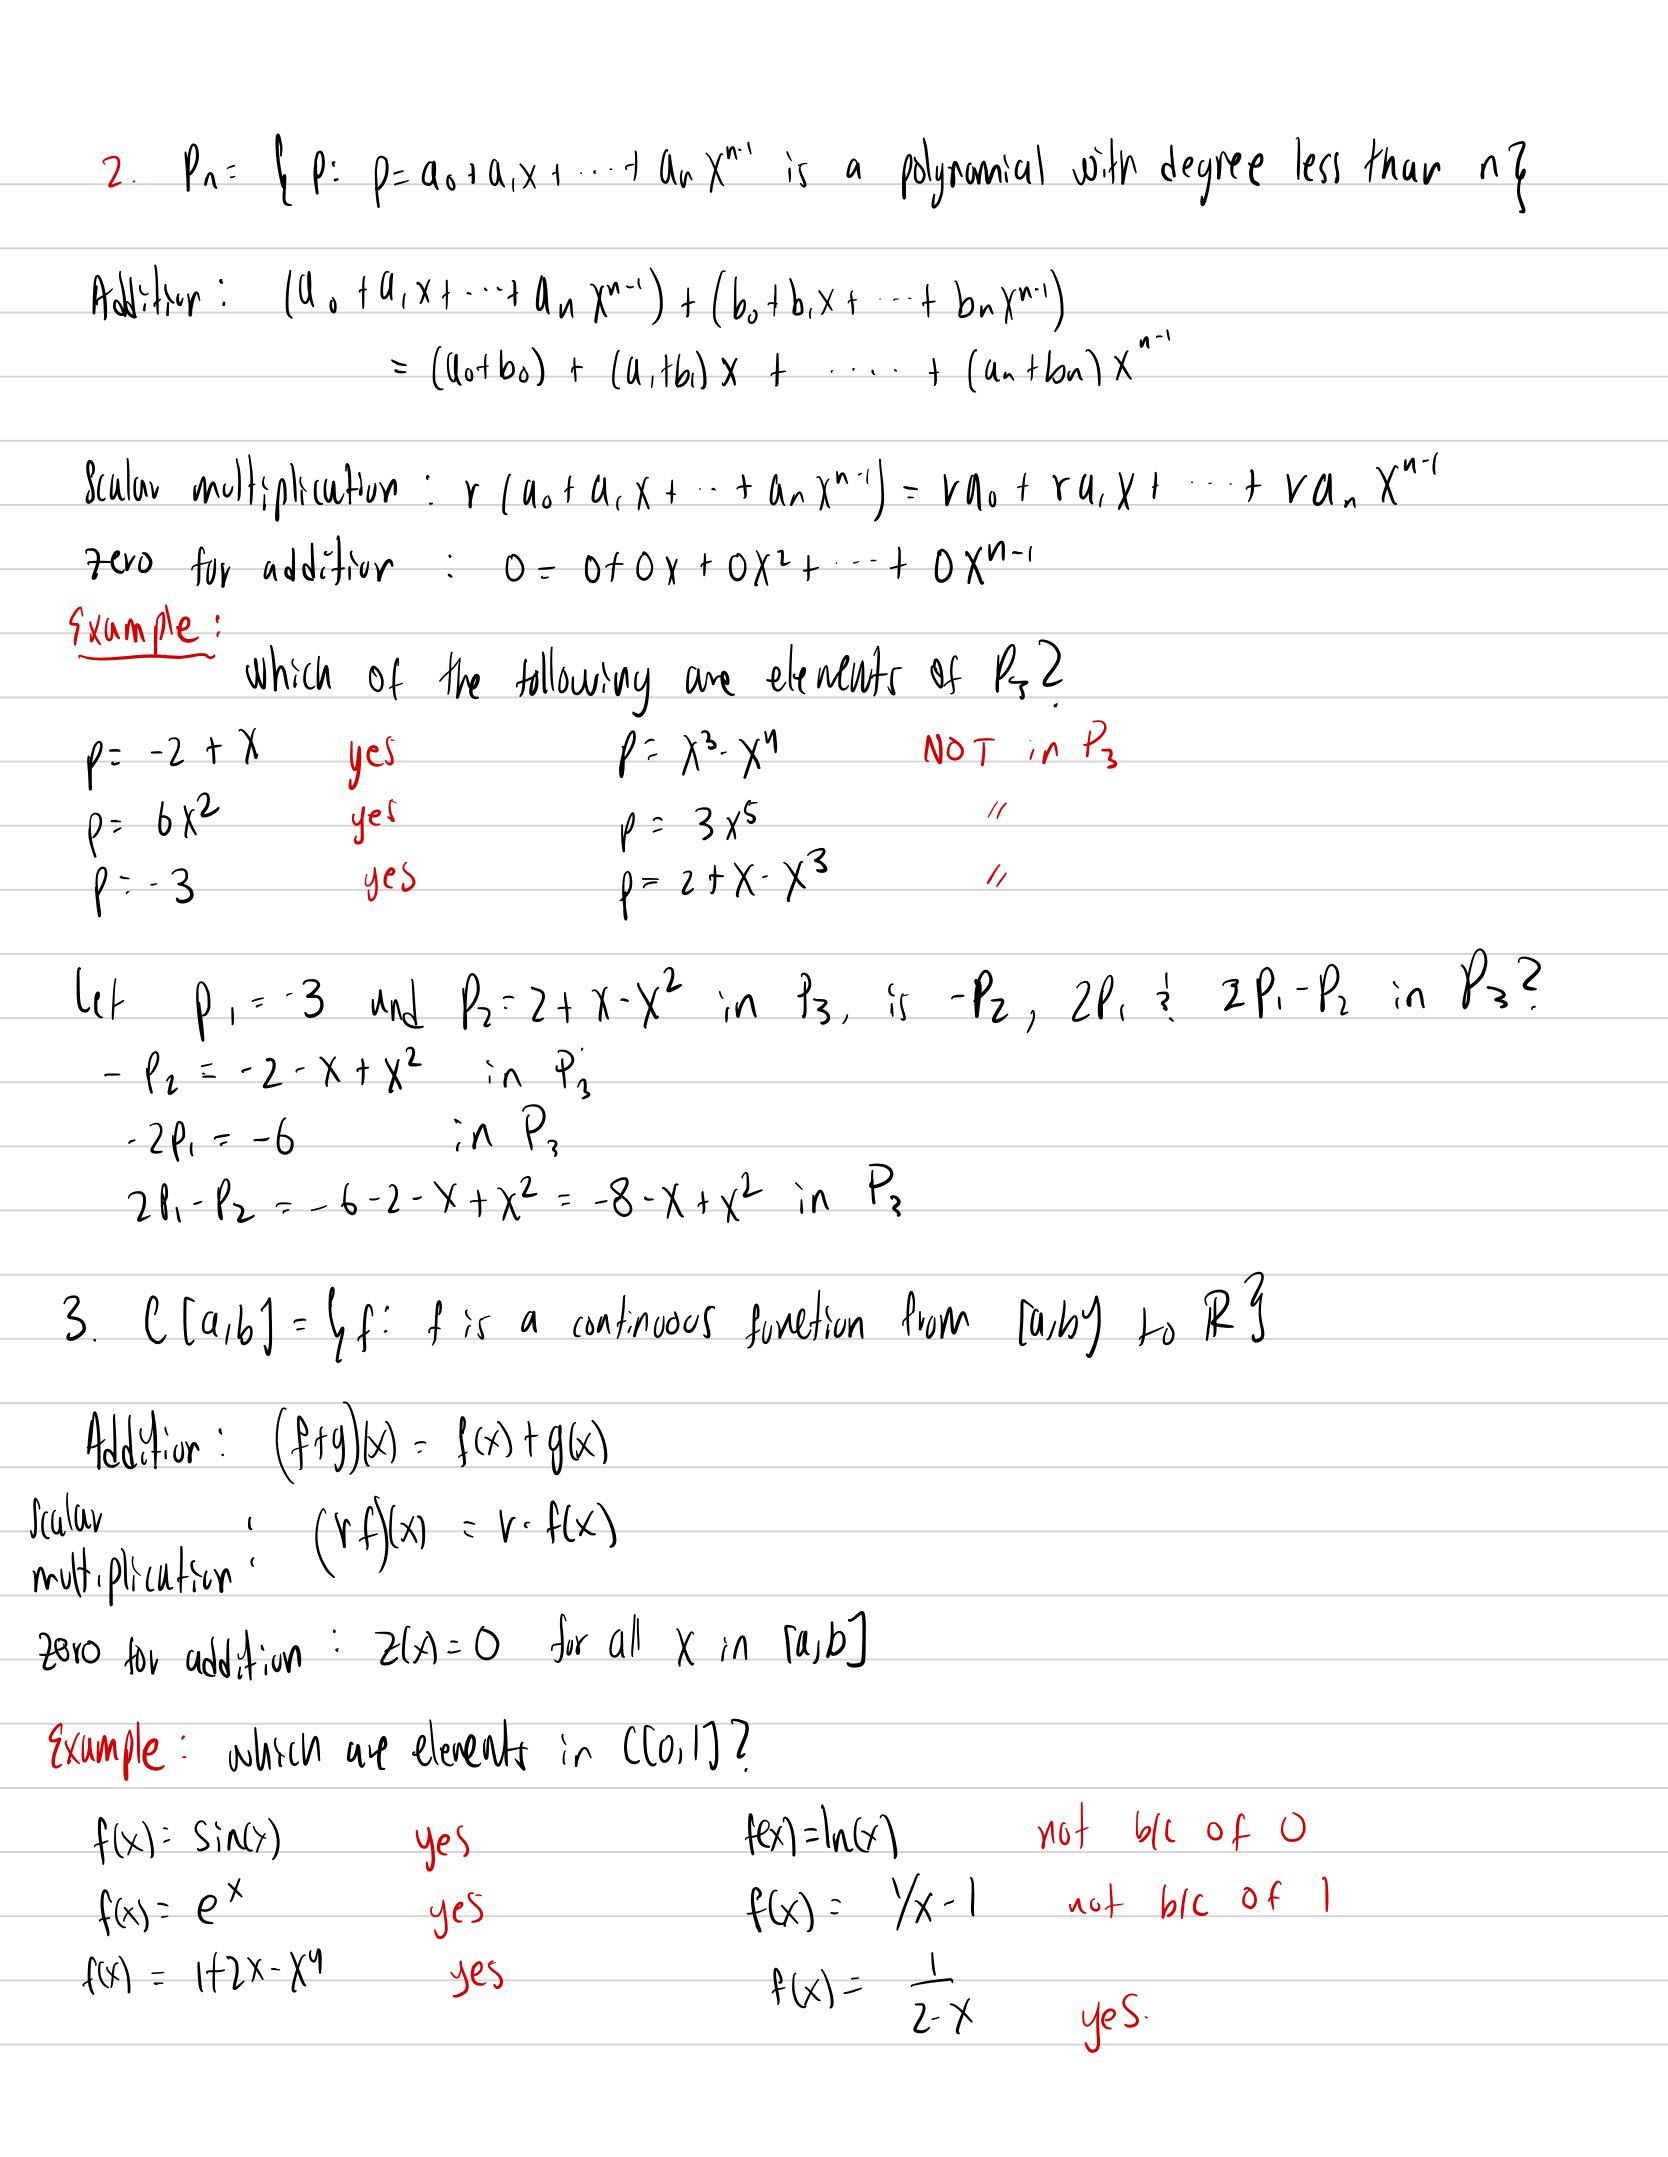 2. Pn = { p: p = a₀ + a₁x + ··· + aₙ xⁿ⁻¹ is a polynomial with degree less than n}
Addition: (a₀ + a₁x + ··· + aₙ xⁿ⁻¹) + (b₀ + b₁x + ··· + bₙxⁿ⁻¹)
= (a₀+b₀) + (a₁+b₁) x + ····· + (aₙ+bₙ) xⁿ⁻¹
Scalar multiplication: r (a₀ + a₁x + ·· + aₙxⁿ⁻¹) = ra₀ + ra₁x + ··· + raₙ xⁿ⁻¹
zero for addition : 0 = 0+0x + 0x² + ··· + 0xⁿ⁻¹
Example:
which of the following are elements of P₃?
p = -2 + x yes p = x³ - x⁴ NOT in P₃
p = 6x² yes p = 3x⁵ "
p = -3 yes p = 2+x-x³ "
Let p₁ = -3 and P₂ = 2+x-x² in P₃, is -P₂, 2P₁ & 2P₁-P₂ in P₃?
- P₂ = -2-x+x² in P₃
-2P₁ = -6 in P₃
2P₁-P₂ = -6-2-x+x² = -8-x+x² in P₃
3. C[a,b] = {f: f is a continuous function from [a,b] to ℝ}
Addition: (f+g)(x) = f(x)+g(x)
scalar
multiplication : (rf)(x) = r·f(x)
zero for addition : z(x)=0 for all x in [a,b]
Example: which are elements in C[0,1]?
f(x) = sin(x) yes f(x) = ln(x) not b/c of 0
f(x) = eˣ yes f(x) = 1/x-1 not b/c of 1
f(x) = 1+2x-x⁴ yes f(x) = 1/2-x yes.